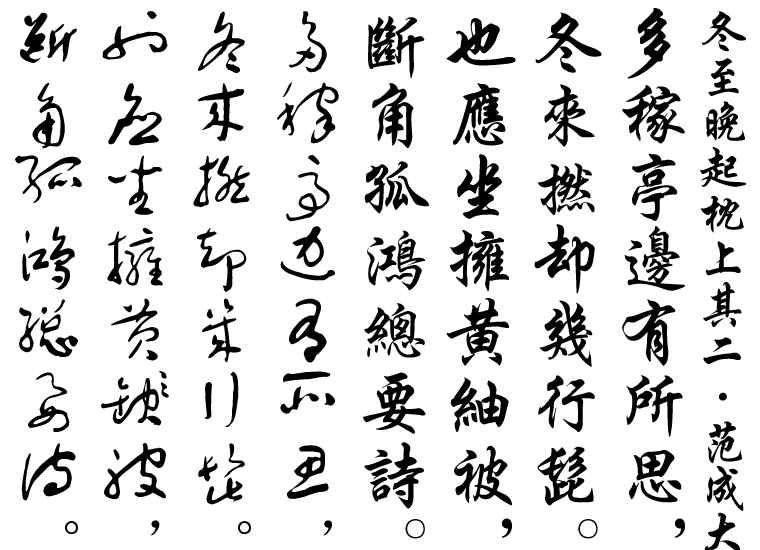 冬至晚起枕上其二・范成大
多稼亭邊有所思，
冬來撚却幾行髭。
也應坐擁黃紬被，
斷角孤鴻總要詩。
多稼亭邊有所思，
冬來撚却幾行髭。
也應坐擁黃紬被，
斷角孤鴻總要詩。